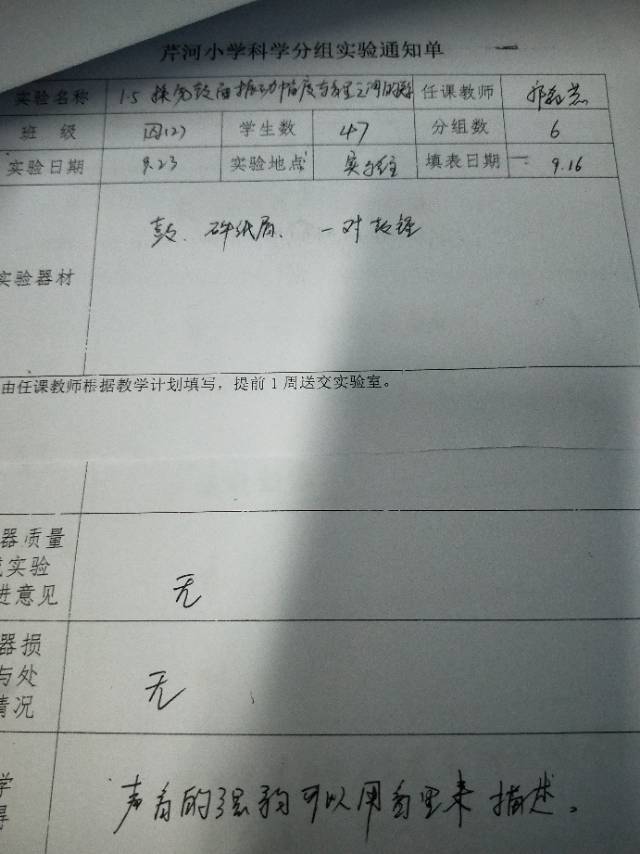 芹河小学科学分组实验通知单
实验名称 1.5 探究鼓面振动幅度与音量之间的 任课教师
班 级 四(2) 学生数 47 分组数 6
实验日期 9.23 实验地点 填表日期 9.16
鼓、碎纸屑、一对鼓锤
实验器材
由任课教师根据教学计划填写，提前1周送交实验室。
器质量
实验
进意见 无
器损
与处
情况 无
学
得 声音的强弱可以用音量来描述。